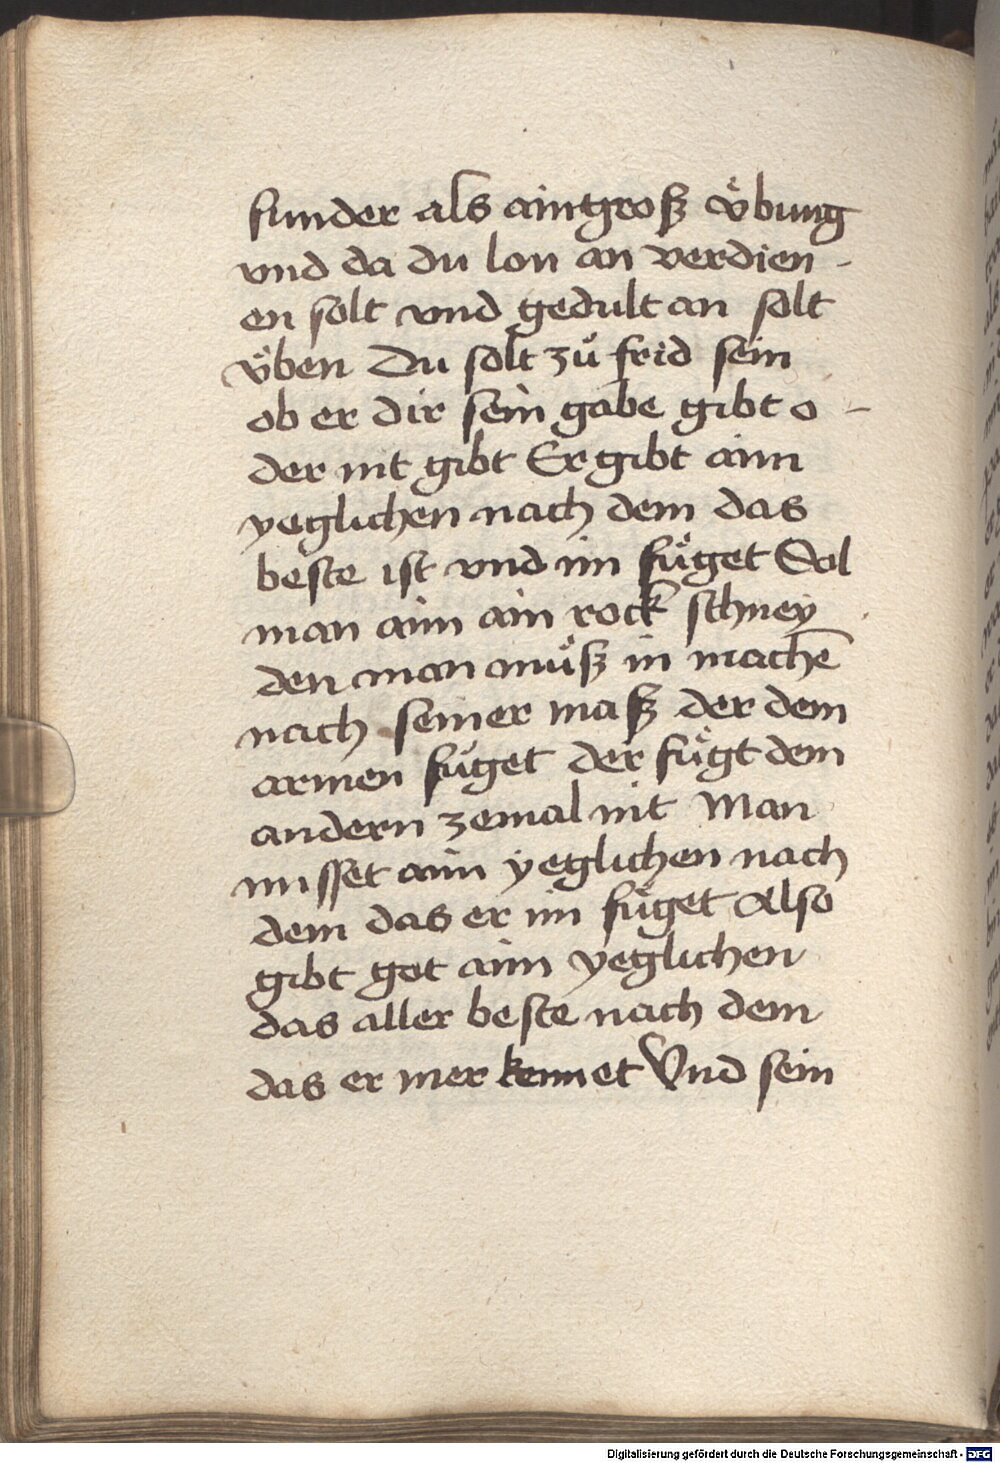 sunder als aintgrosz vͤbung
vnd da du lon an verdien -
en solt vnd gedult an solt
vͤben Du solt zuͦ frid sein
ob er dir sein gabe gibt o -
der nit gibt Er gibt aim
yeglichen nach dem das
beste ist vnd im fuͤget Sol
man aim ain rock schney
den man muͦsz in machē
nach seiner masz der dem
armen fuͤget der fuͤgt dem
andern zemal nit Man
misset aim yeglichen nach
dem das er im fuͤget Also
gibt got aim yeglichen
das aller beste nach dem
das er mer kennet Vnd sein
Digitalisierung gefördert durch die Deutsche Forschungsgemeinschaft - DFG